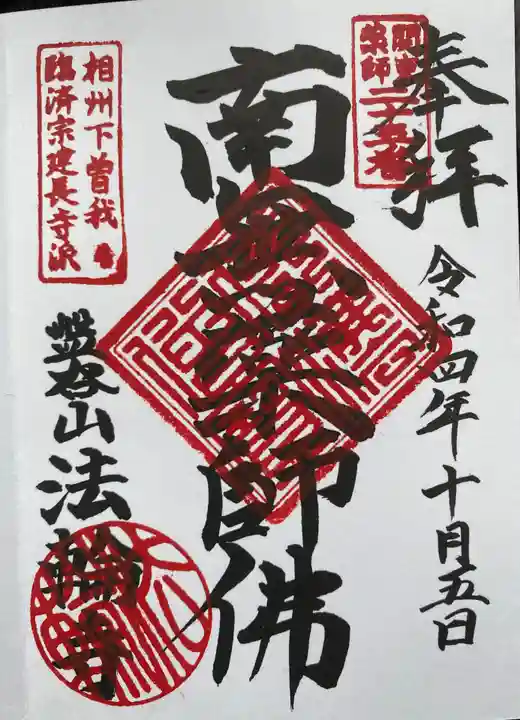 奉拝
令和四年十月五日
関東
薬師
二十五番
南無薬師佛
相州下曽我
臨済宗建長寺派
鷲谷山法輪寺